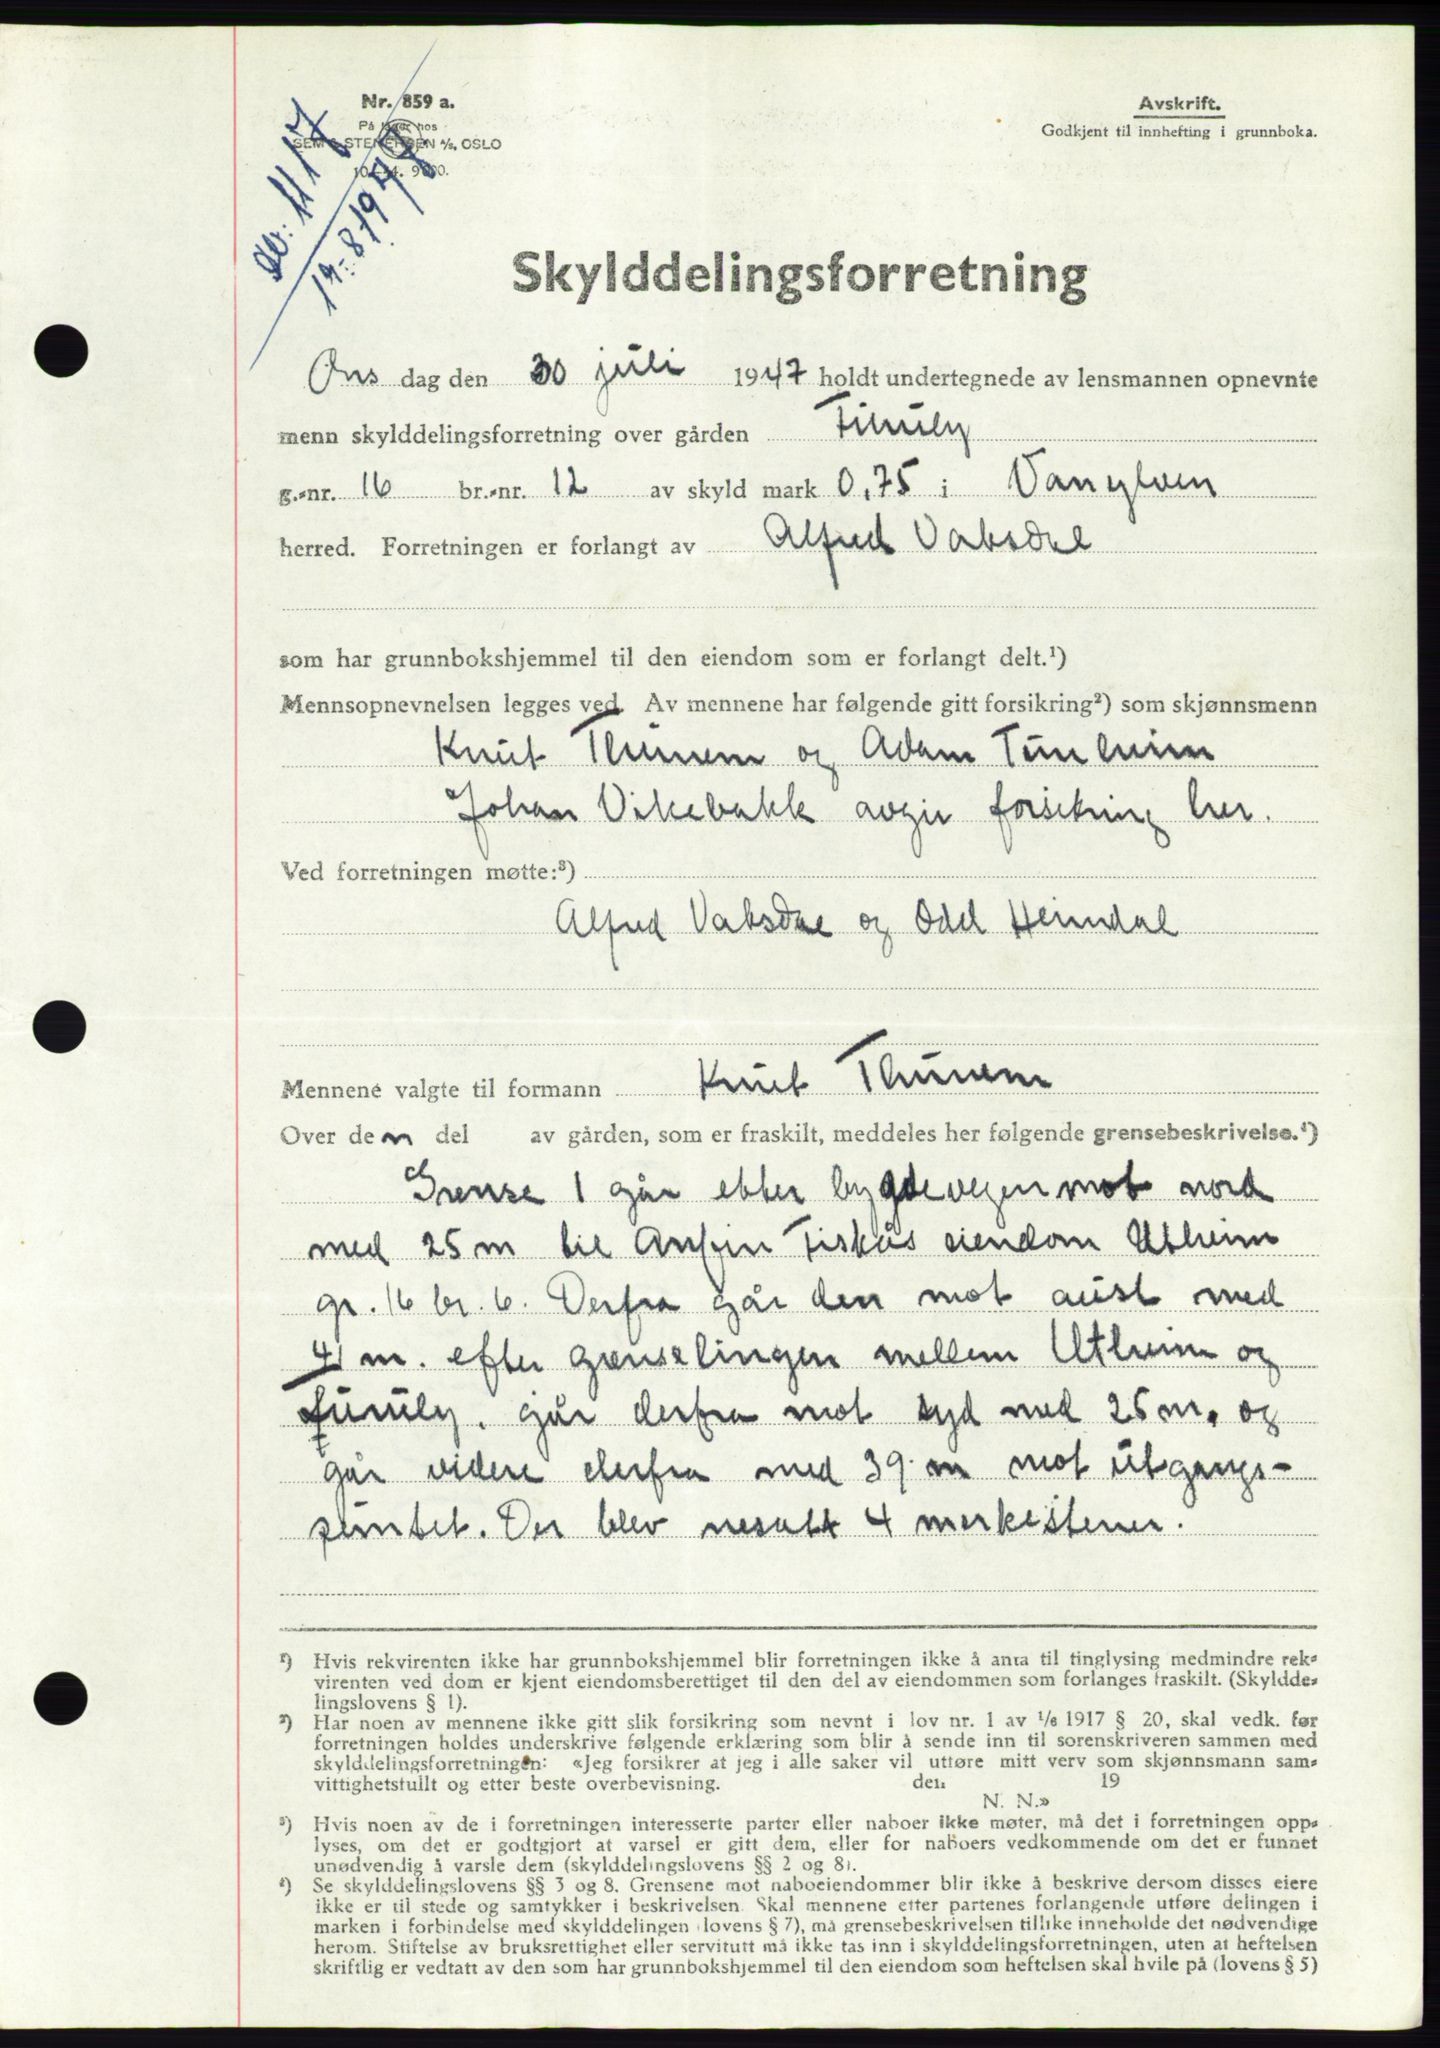 Nr. 859 a.
På lager hos
SEM & STENERSEN A/S, OSLO
Avskrift.
Godkjent til innhefting i grunnboka.
1117
Skylddelingsforretning
Ons dag den 30 juli 1947 holdt undertegnede av lensmannen opnevnte
menn skylddelingsforretning over gården
g.-nr. 16 br.-nr. 12 av skyld mark 0,75 i Vanylven
herred. Forretningen er forlangt av Alfred Vabsdal
som har grunnbokshjemmel til den eiendom som er forlangt delt.¹)
Mennsopnevnelsen legges ved. Av mennene har følgende gitt forsikring²) som skjønnsmenn
Knut Thunem og Adam Tunheim
Johan Vikebakk avgir forsikring her.
Ved forretningen møtte:³)
Alfred Vabsdal og Odd Heimdal
Mennene valgte til formann Knut Thunem
Over den del av gården, som er fraskilt, meddeles her følgende grensebeskrivelse.⁴)
Grense 1 går etter bygdevegen mot nord
med 25 m til Anfin Fiskås eiendom Utheim
gr. 16 br. 6. Derfra går den mot aust med
41 m. efter grenselingen mellem Utheim og
går derfra mot syd med 25 m. og
går videre derfra med 39 m mot utgangs-
puntet. Der blev nesatt 4 merkestener.
¹) Hvis rekvirenten ikke har grunnbokshjemmel blir forretningen ikke å anta til tinglysing medmindre rek-
virenten ved dom er kjent eiendomsberettiget til den del av eiendommen som forlanges fraskilt. (Skyldde-
lingslovens § 1).
²) Har noen av mennene ikke gitt slik forsikring som nevnt i lov nr. 1 av 1/6 1917 § 20, skal vedk. før
forretningen holdes underskrive følgende erklæring som blir å sende inn til sorenskriveren sammen med
skylddelingsforretningen: «Jeg forsikrer at jeg i alle saker vil utføre mitt verv som skjønnsmann sam-
vittighetsfullt og etter beste overbevisning. den 19
N. N.»
³) Hvis noen av de i forretningen interesserte parter eller naboer ikke møter, må det i forretningen opp-
lyses, om det er godtgjort at varsel er gitt dem, eller for naboers vedkommende om det er funnet
unødvendig å varsle dem (skylddelingslovens §§ 2 og 8).
⁴) Se skylddelingslovens §§ 3 og 8. Grensene mot naboeiendommer blir ikke å beskrive dersom disses eiere
ikke er til stede og samtykker i beskrivelsen. Skal mennene etter partenes forlangende utføre delingen i
marken i forbindelse med skylddelingen (lovens § 7), må grensebeskrivelsen tillike inneholde det nødvendige
herom. Stiftelse av bruksrettighet eller servitutt må ikke tas inn i skylddelingsforretningen, uten at heftelsen
skriftlig er vedtatt av den som har grunnbokshjemmel til den eiendom som heftelsen skal hvile på (lovens § 5)